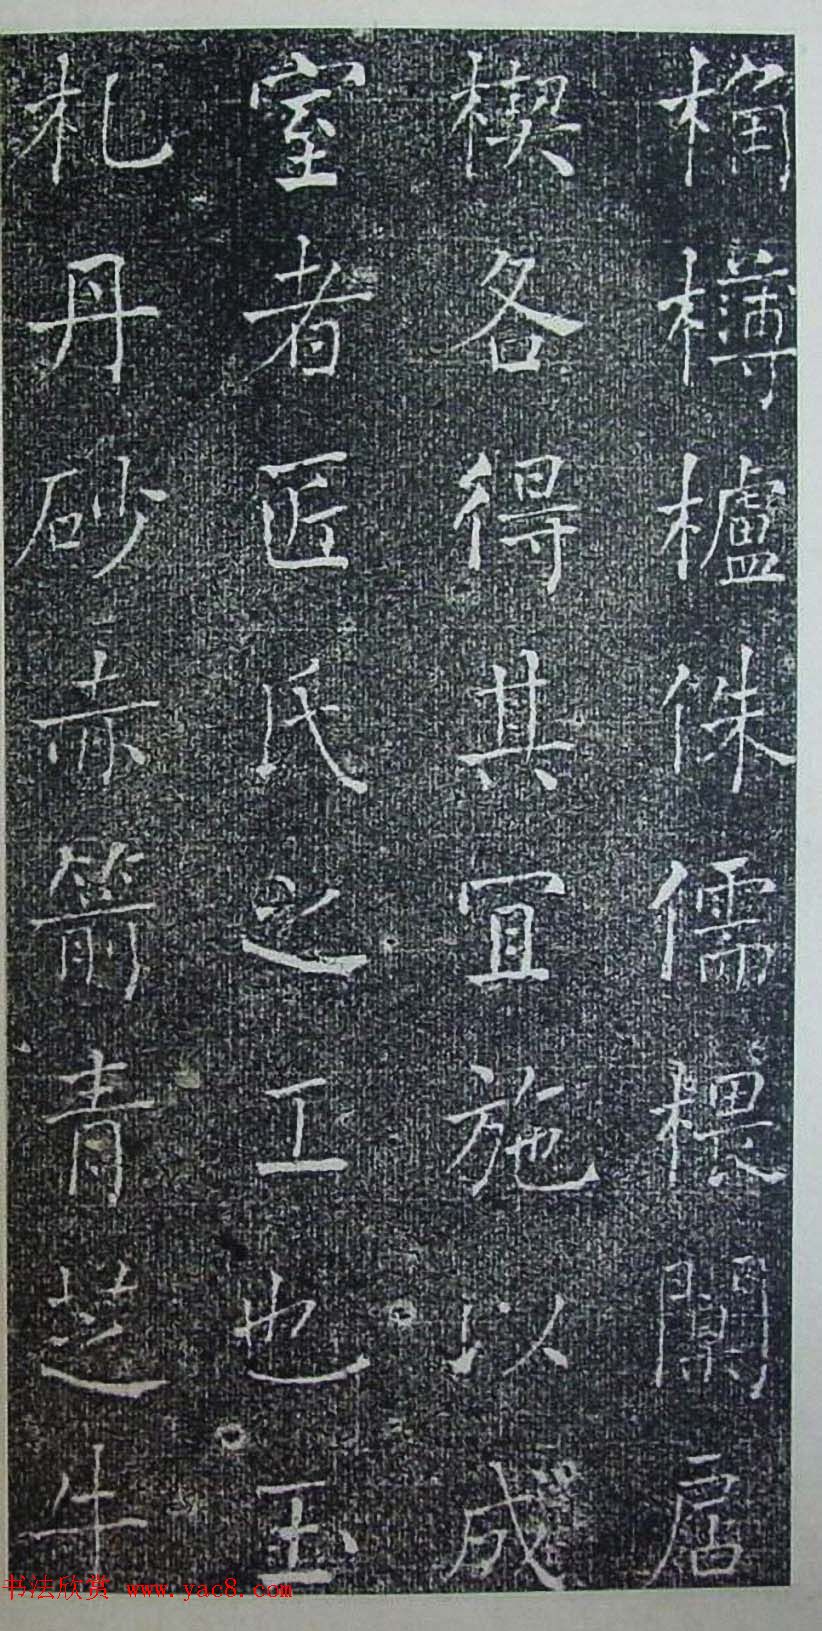 桷欂櫨侏儒椳闑扂
楔各得其冝施以成
室者匠氏之工也玉
札丹砂赤箭青芝牛
书法欣赏 www.yac8.com